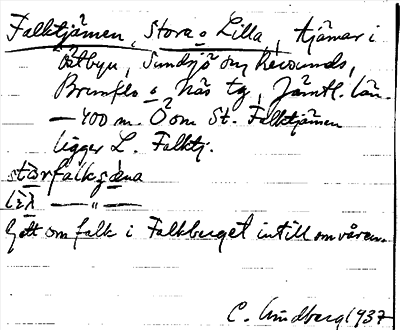 Falktjämen, Stora o Lilla, tjämar i
Östbyn, Sundsjö o Revsunds,
Brunflo o Näs tg, Jämtl. län.
— 400 m. Ö om St. Falktjämen
ligger L. Falktj.
stɔrfalkʒɛna
lɛ̀λ — „ —
Gott om falk i Falkberget intill om våren.
C. Lindberg 1937